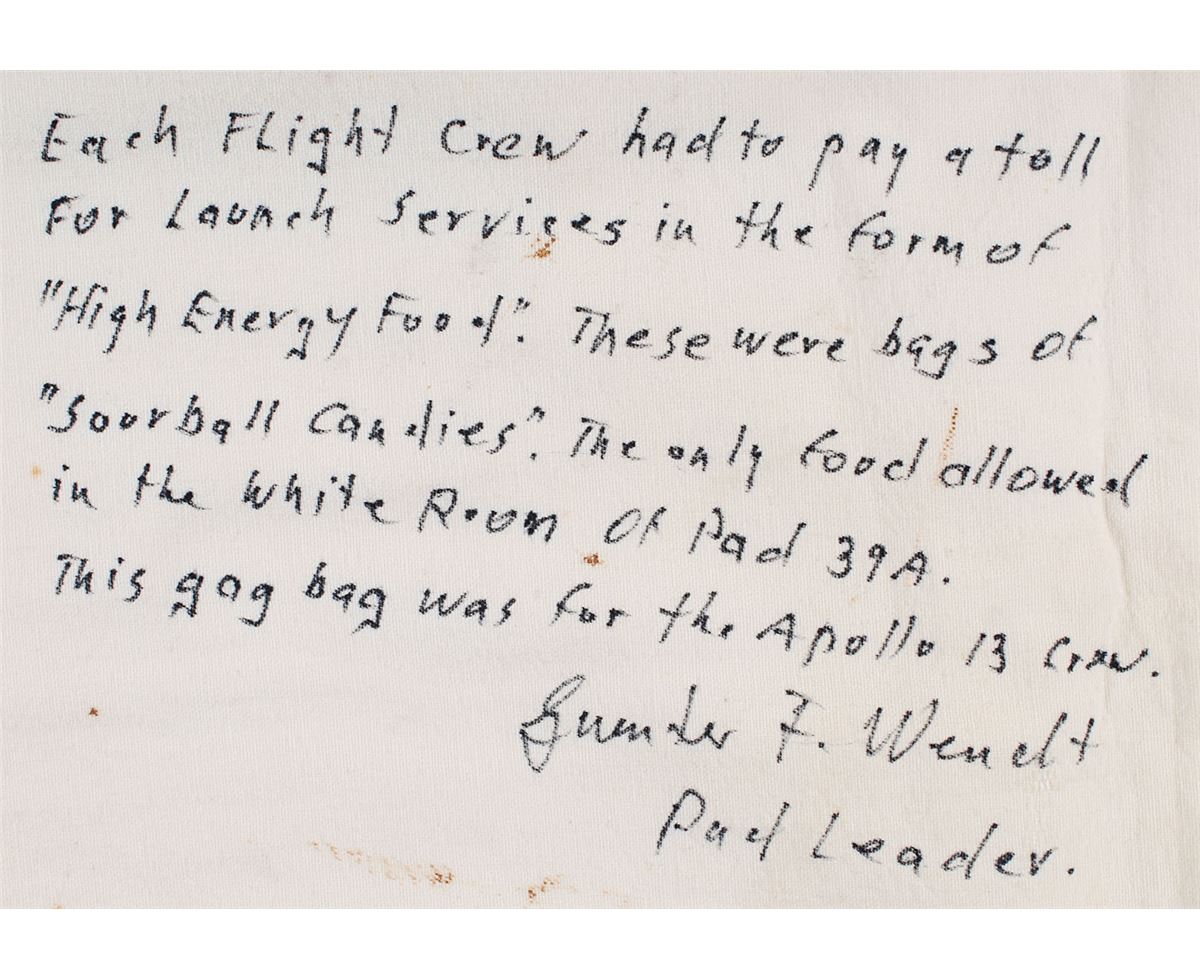 Each Flight Crew had to pay a toll
For Launch Services in the form of
"High Energy Food". These were bags of
"Sourball Candies". The only food allowed
in the White Room of Pad 39A.
This gag bag was for the Apollo 13 crew.
Guenter F. Wendt
Pad Leader.